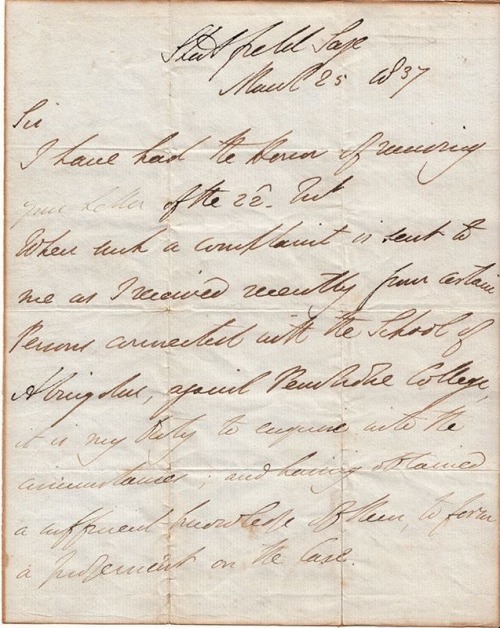 Stratfield Saye
March 25 1837
Sir
I have had the Honor of receiving
your Letter of the 22d. Inst
When such a complaint is sent to
me as I received recently from certain
Persons connected with the School of
Abingdon, against Pembroke College,
it is my Duty to enquire into the
circumstances; and having obtained
a sufficient knowledge of them, to form
a Judgement on the Case.